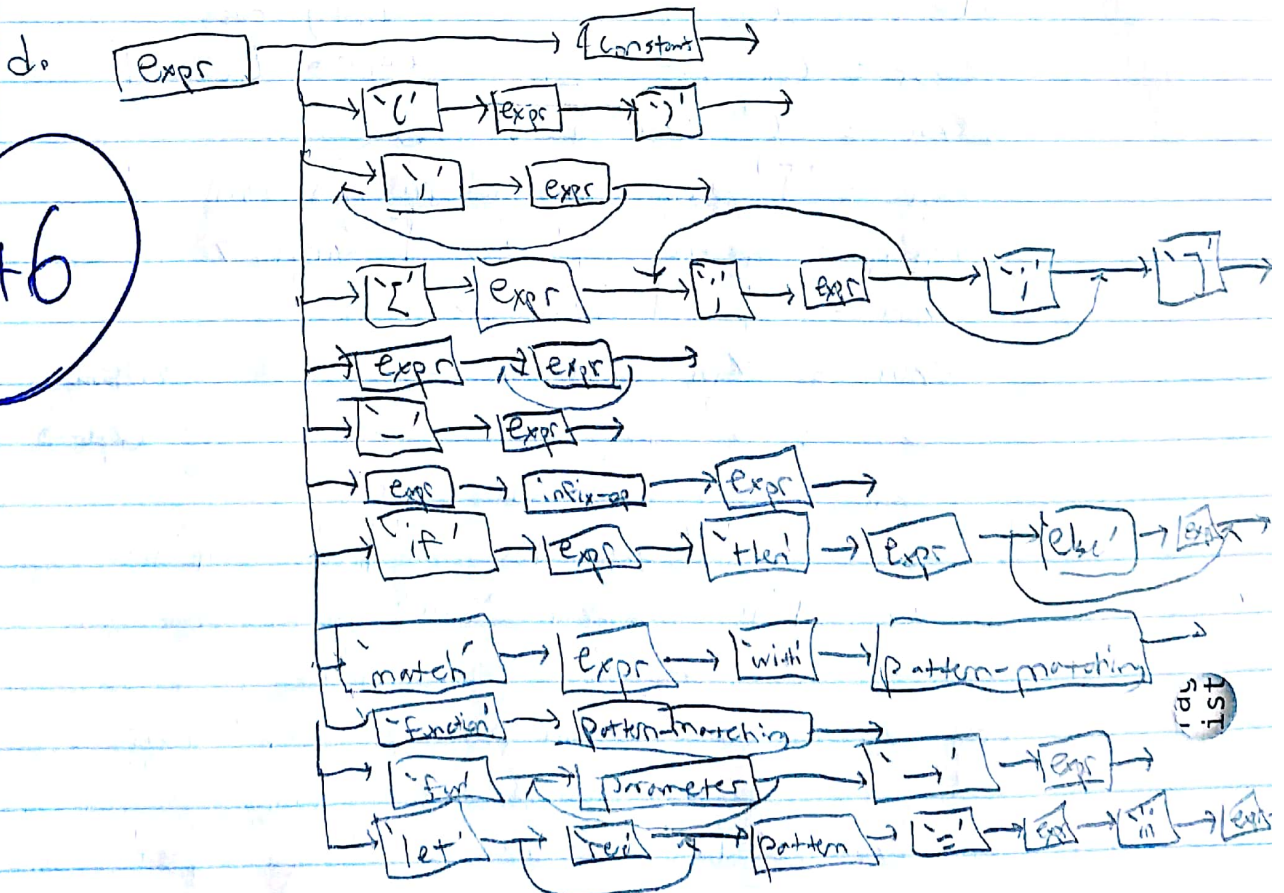 d. expr constant
`(' expr `)'
`,' expr
+6
`[' expr `;' expr `;' `]'
expr expr
`-' expr
expr infix-op expr
`if' expr `then' expr `else' expr
`match' expr `with' pattern-matching
`function' pattern-matching
`fun' parameter `→' expr
`let' `rec' pattern `=' expr `in' expr